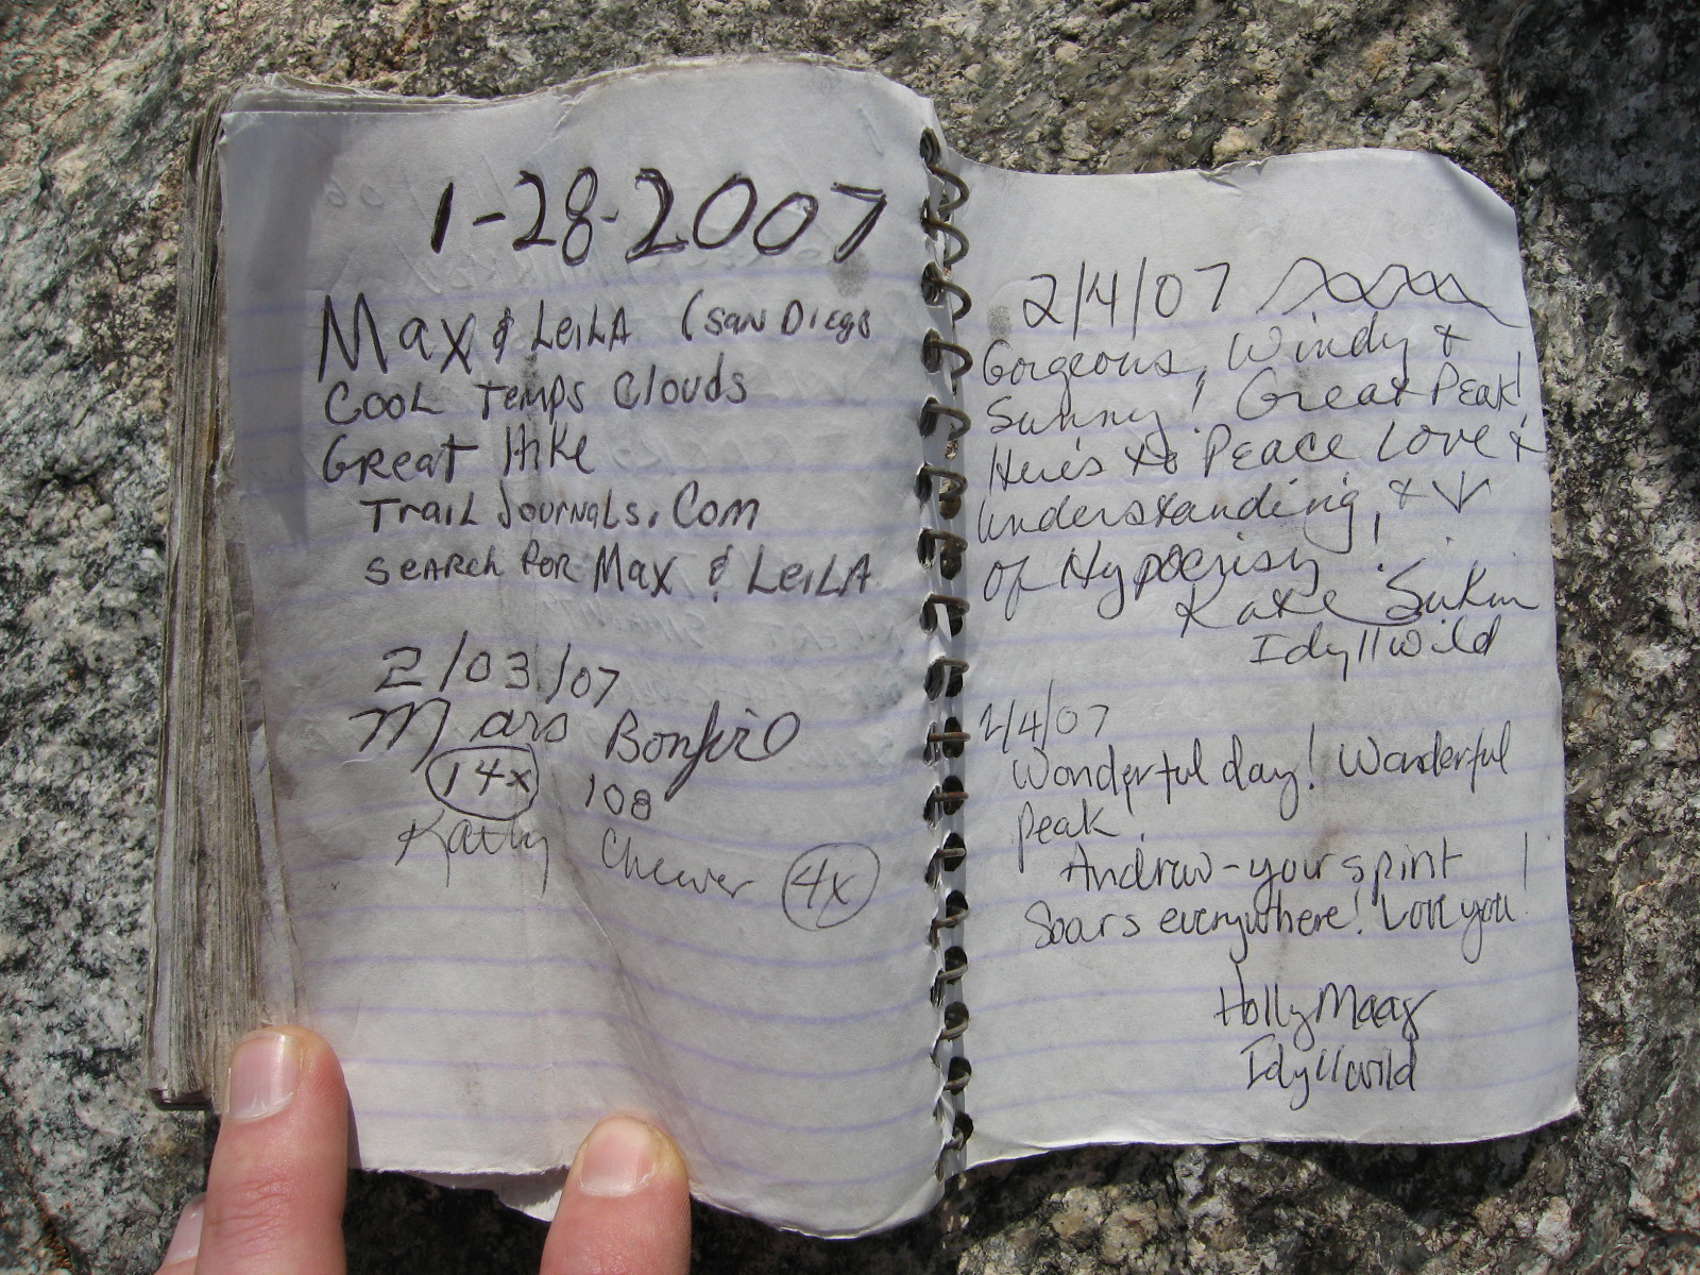 1-28-2007
Max & LeiLA (SAN Diego
COOL Temps Clouds
GReat Hike
TraiL JOURNALS.Com
SEARCH FOR Max & LeiLA
2/03/07
Mars Bonfire
14x 108
Kathy Cheever 4x
2/4/07
Gorgeous, Windy &
Sunny! Great Peak!
Here's to Peace Love &
Understanding, & ↓
of Hypocrisy
Kate
Idyllwild
2/4/07
Wonderful day! Wonderful
peak!
Andrew - your spirit
Soars everywhere! Love you!
Holly Maag
Idyllwild